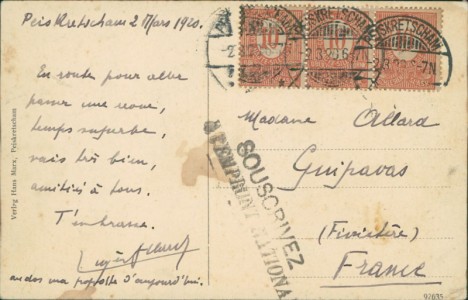 Peiskretscham 2 Mars 1920.
En route pour aller
passer une revue,
temps superbe,
vais très bien,
amitiés à tous.
T'embrasse.
au dos ma popotte d'aujourd'hui.
Verlag Hans Marx, Peiskretscham
10
PEISKRETSCHAM
Madame Allard
Guipavas
(Finistère)
France
SOUSCRIVEZ
A L'EMPRUNT NATIONAL
92635